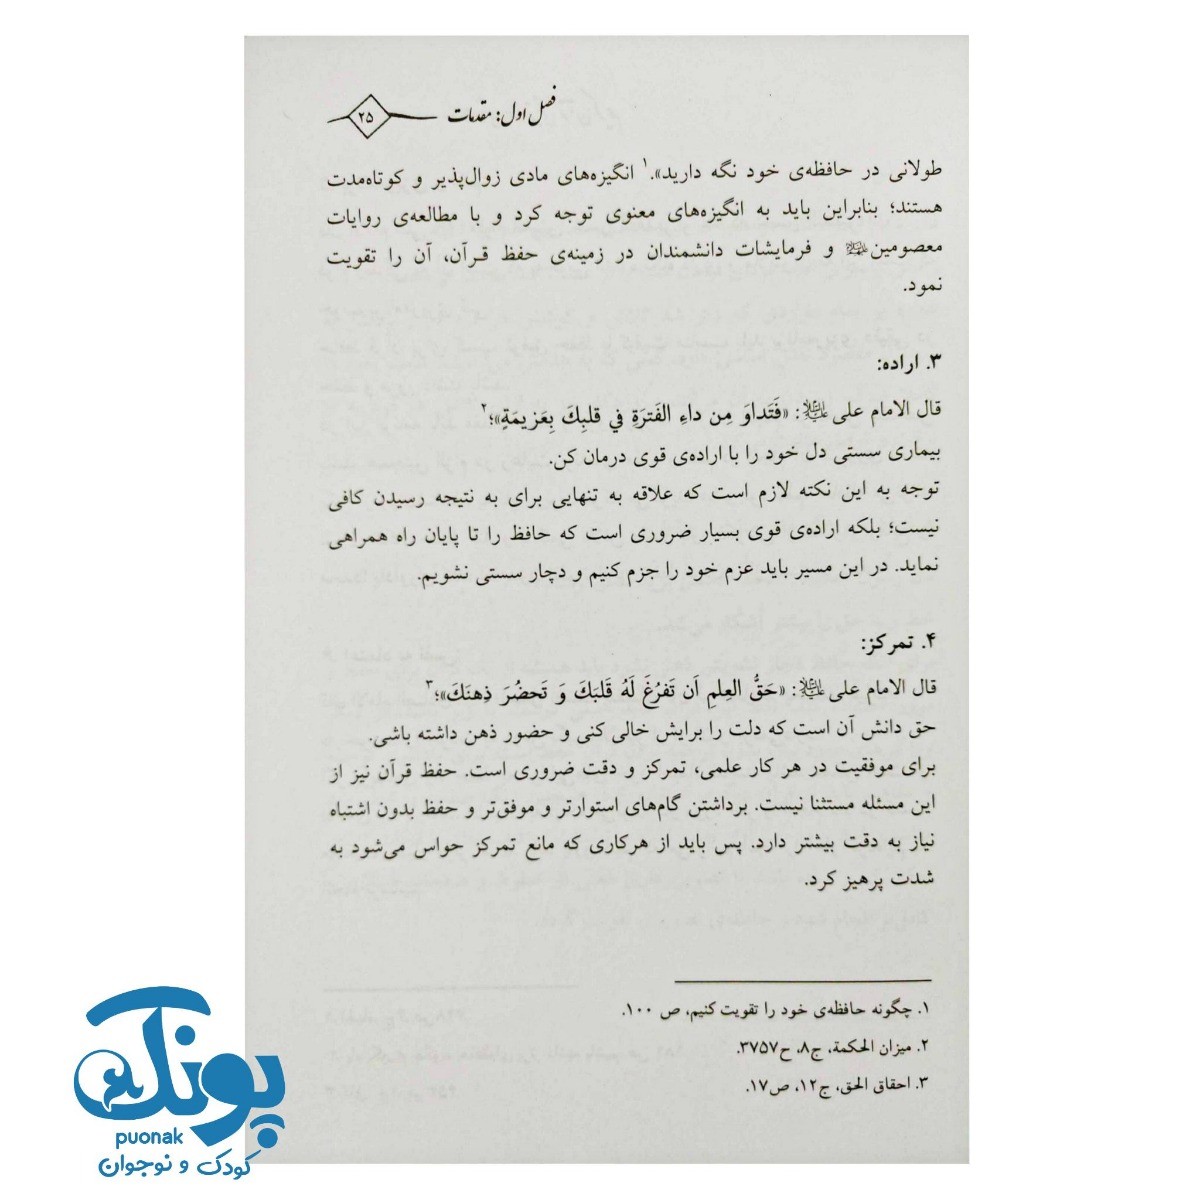 فصل اول: مقدمات
۲۵
طولانی در حافظه‌ی خود نگه دارید».۱ انگیزه‌های مادی زوال‌پذیر و کوتاه‌مدت
هستند؛ بنابراین باید به انگیزه‌های معنوی توجه کرد و با مطالعه‌ی روایات
معصومین و فرمایشات دانشمندان در زمینه‌ی حفظ قرآن، آن را تقویت
نمود.
۳. اراده:
قال الامام علی: «فَتَداوَ مِن داءِ الفَترَةِ في قلبِكَ بِعَزيمَةٍ»؛۲
بیماری سستی دل خود را با اراده‌ی قوی درمان کن.
توجه به این نکته لازم است که علاقه به تنهایی برای به نتیجه رسیدن کافی
نیست؛ بلکه اراده‌ی قوی بسیار ضروری است که حافظ را تا پایان راه همراهی
نماید. در این مسیر باید عزم خود را جزم کنیم و دچار سستی نشویم.
۴. تمرکز:
قال الامام علی: «حَقُّ العِلمِ اَن تَفرُغَ لَهُ قَلبَكَ وَ تَحضُرَ ذِهنَكَ»؛۳
حق دانش آن است که دلت را برایش خالی کنی و حضور ذهن داشته باشی.
برای موفقیت در هر کار علمی، تمرکز و دقت ضروری است. حفظ قرآن نیز از
این مسئله مستثنا نیست. برداشتن گام‌های استوارتر و موفق‌تر و حفظ بدون اشتباه
نیاز به دقت بیشتر دارد. پس باید از هرکاری که مانع تمرکز حواس می‌شود به
شدت پرهیز کرد.
۱. چگونه حافظه‌ی خود را تقویت کنیم، ص ۱۰۰.
۲. میزان الحکمة، ج۸، ح۳۷۵۷.
۳. احقاق الحق، ج۱۲، ص۱۷.
پونک
puonak
کودک و نوجوان